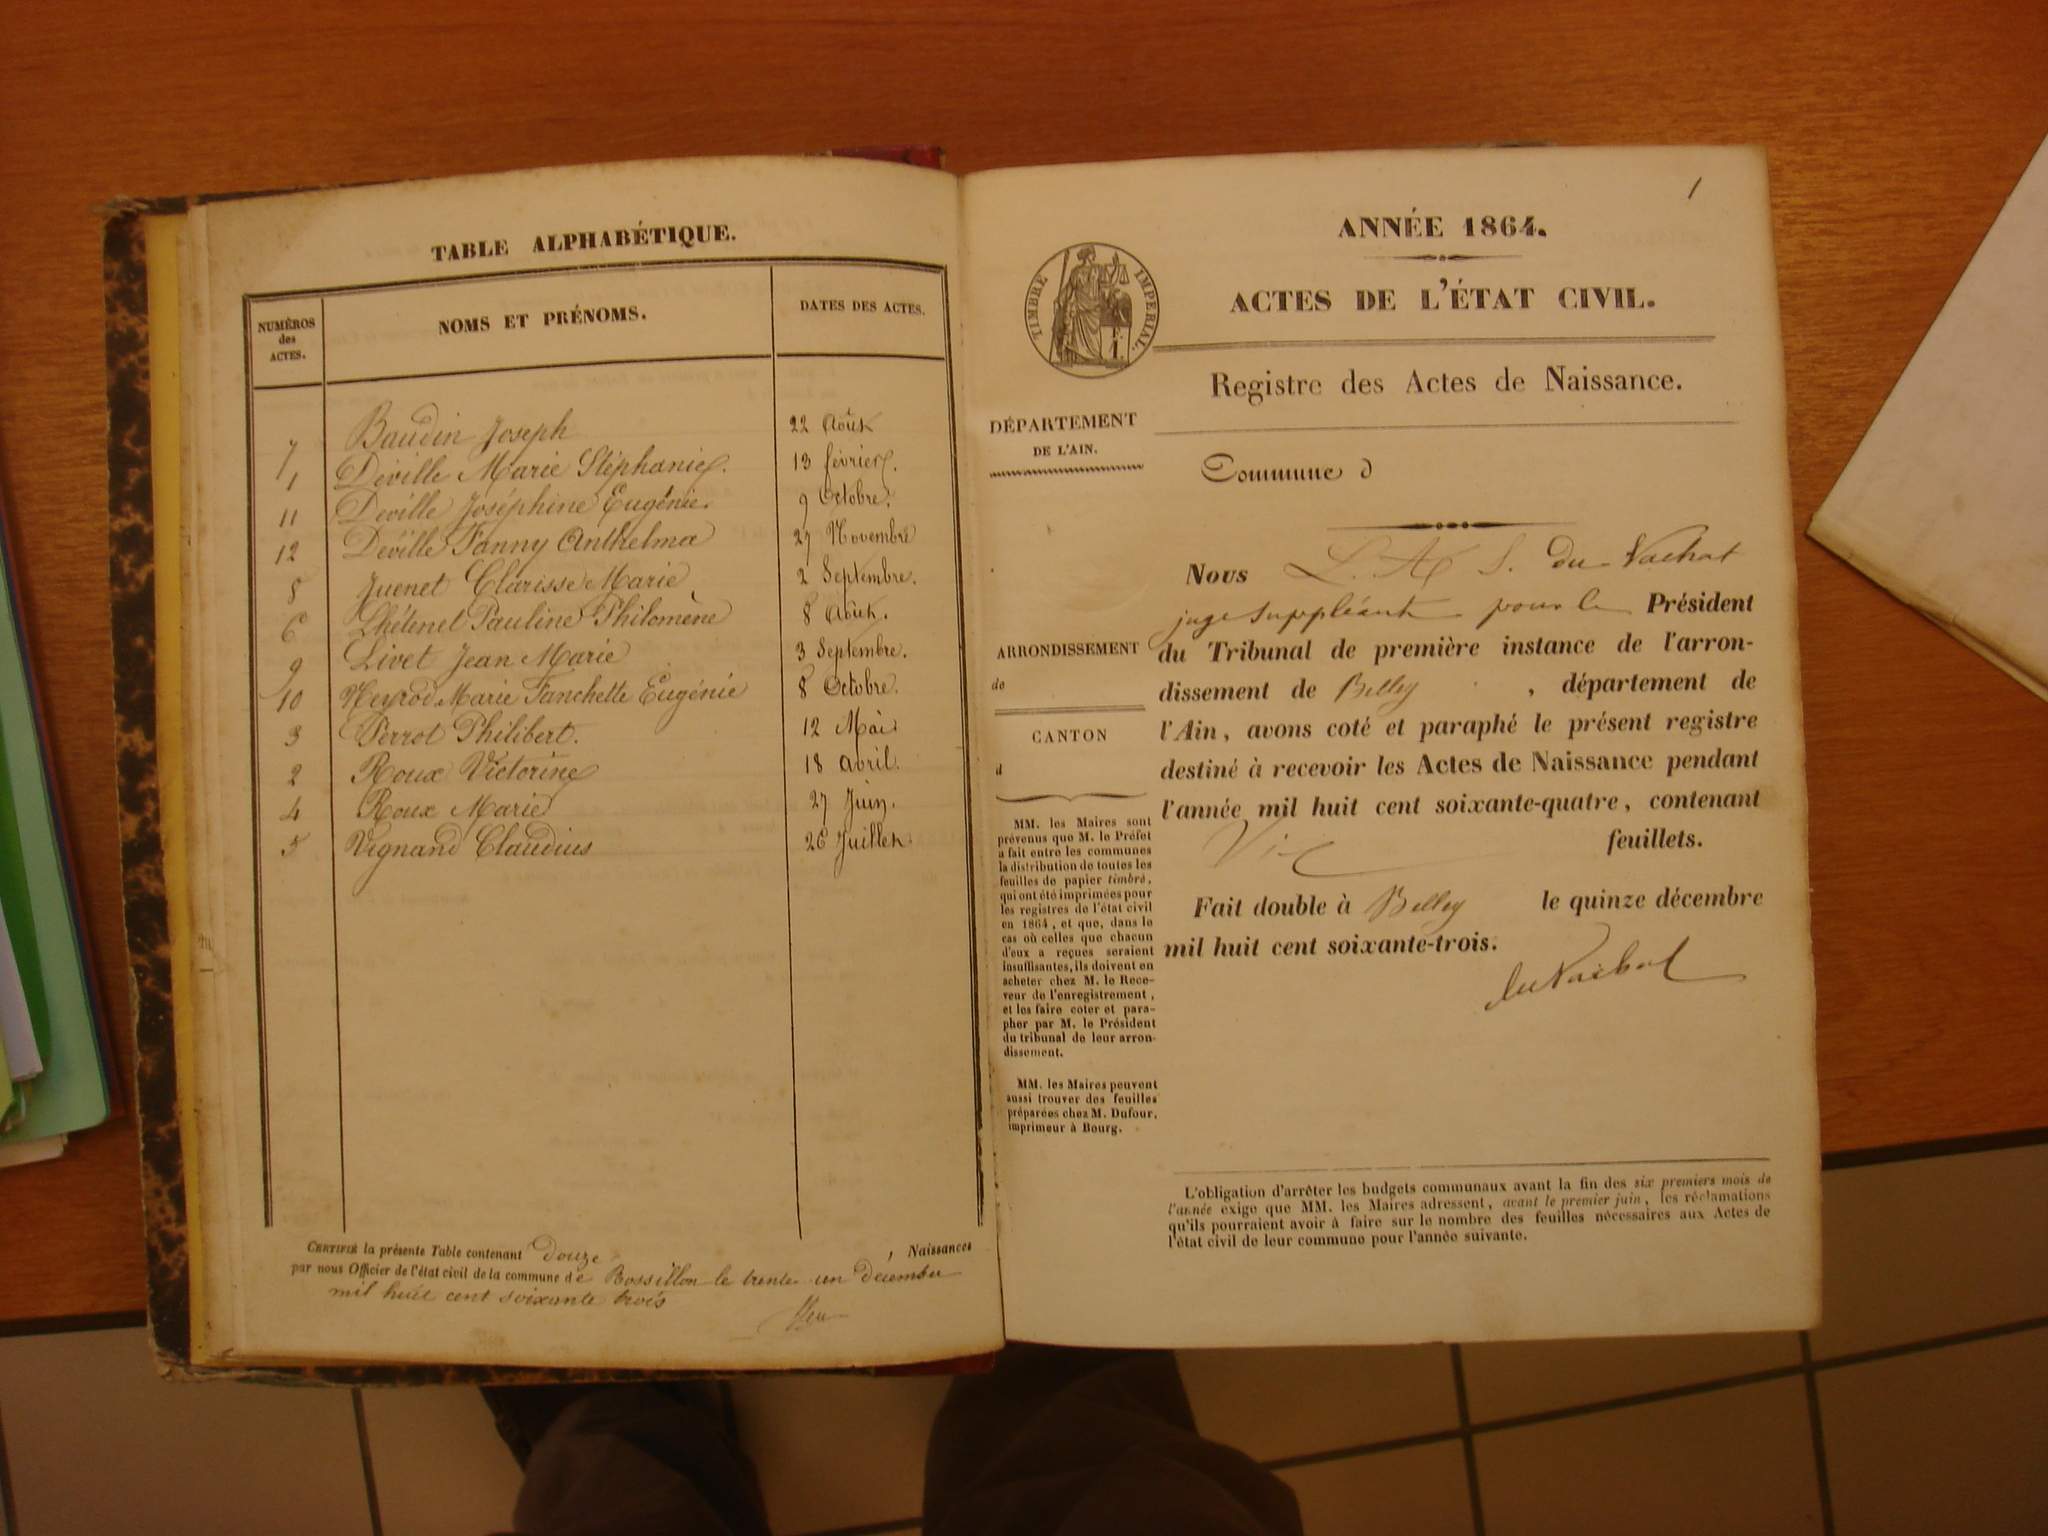 TABLE ALPHABÉTIQUE.
NUMÉROS
des
ACTES.
NOMS ET PRÉNOMS.
DATES DES ACTES.
7 Baudin Joseph 22 Août
1 Déville Marie Stéphanie. 13 février.
11 Déville Joséphine Eugénie. 9 Octobre.
12 Déville Fanny Anthelma 27 Novembre
8 Juenet Clarisse Marie 2 Septembre.
6 Lhétenet Pauline Philomène 8 Août.
9 Livet Jean Marie 3 Septembre.
10 Neyrod Marie Fanchette Eugénie 8 Octobre.
3 Perrot Philibert. 12 Mai
2 Roux Victorine 18 avril.
4 Roux Marie 27 Juin.
5 Vignand Claudius 26 Juillet.
CERTIFIÉ la présente Table contenant Douze, Naissances
par nous Officier de l'état civil de la commune de Rossillon le trente un décembre
mil huit cent soixante trois
1
ANNÉE 1864.
TIMBRE IMPERIAL.
ACTES DE L'ÉTAT CIVIL.
Registre des Actes de Naissance.
DÉPARTEMENT
DE L'AIN.
Commune d
Nous L. A. S. du Vachat
juge suppléant pour le Président
du Tribunal de première instance de l'arron-
dissement de Belley, département de
l'Ain, avons coté et paraphé le présent registre
destiné à recevoir les Actes de Naissance pendant
l'année mil huit cent soixante-quatre, contenant
feuillets.
Fait double à Belley le quinze décembre
mil huit cent soixante-trois.
du Vachat
ARRONDISSEMENT
de
CANTON
d
MM. les Maires sont
prévenus que M. le Préfet
a fait entre les communes
la distribution de toutes les
feuilles de papier timbré,
qui ont été imprimées pour
les registres de l'état civil
en 1864, et que, dans le
cas où celles que chacun
d'eux a reçues seraient
insuffisantes, ils doivent en
acheter chez M. le Rece-
veur de l'enregistrement,
et les faire coter et para-
pher par M. le Président
du tribunal de leur arron-
dissement.
MM. les Maires peuvent
aussi trouver des feuilles
préparées chez M. Dufour,
imprimeur à Bourg.
L'obligation d'arrêter les budgets communaux avant la fin des six premiers mois de
l'année exige que MM. les Maires adressent, avant le premier juin, les réclamations
qu'ils pourraient avoir à faire sur le nombre des feuilles nécessaires aux Actes de
l'état civil de leur commune pour l'année suivante.